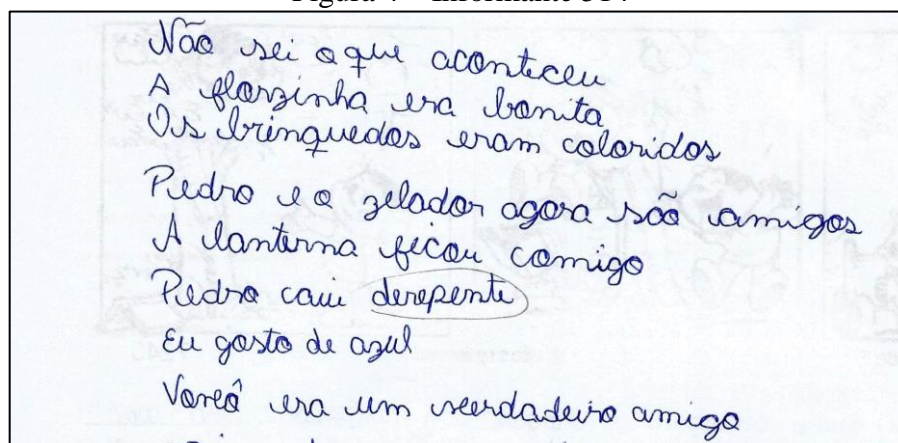 Não sei oque aconteceu
A florzinha era bonita
Os brinquedos eram coloridos
Pedro e o zelador agora são amigos
A lanterna ficou comigo
Pedro caiu derepente
Eu gosto de azul
era um verdadeiro amigo